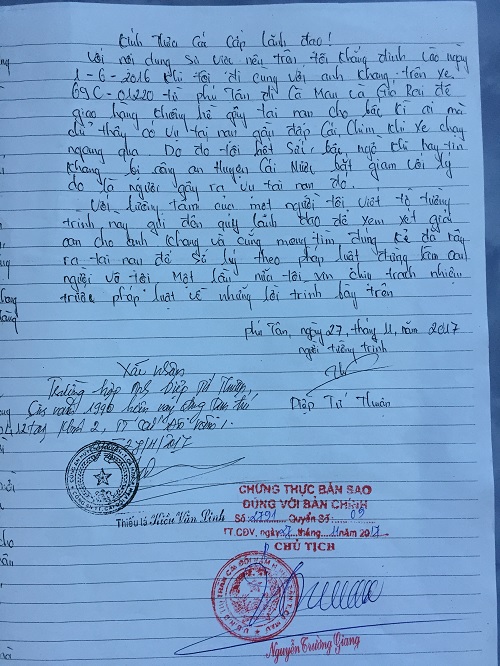 Kính thưa Các cấp lãnh đạo!
Với nội dung sự việc nêu trên tôi khẳng định vào ngày
1-6-2016 khi tôi đi cùng với anh Khang trên xe
69C-01220 từ phú Tân đi Cà Mau và Giá Rai để
giao hàng không hề gây tai nạn cho bất kì ai mà
chỉ thấy có vụ tai nạn gần đập Cái Chim khi xe chạy
ngang qua. Do đó tôi hết sức bất ngờ khi hay tin
Khang bị công an Huyện Cái Nước bắt giam với lý
do là người gây ra vụ tai nạn đó.
Với lương tâm của một người tôi viết tờ tường
trình này gửi đến quý lãnh đạo để xem xét giải
oan cho anh Khang và cũng mong tìm đúng kẻ đã gây
ra tai nạn để sử lý theo pháp luật đừng làm oan
người vô tội. Một lần nữa tôi xin chịu trách nhiệm
trước pháp luật về những lời trình bày trên
phú Tân, ngày 27, tháng 11, năm 2017
người tường trình
Diệp Trí Thuận
Xác nhận
Trường hợp Diệp Trí Thuận,
Sinh năm 1990 hiện nay
Khóm 2, TT Cái Đôi Vàm.
27/11/2017
Thiếu tá Kiều Văn Linh
CHỨNG THỰC BẢN SAO
ĐÚNG VỚI BẢN CHÍNH
Số 1791 Quyển Số 09
TT.CĐV, ngày 27 tháng 11 năm 2017
CHỦ TỊCH
Nguyễn Trường Giang